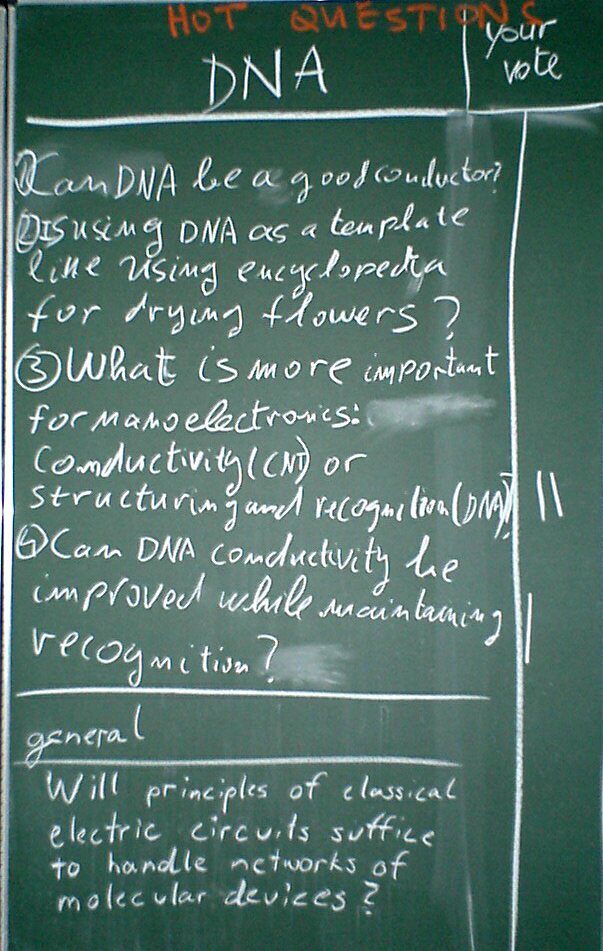 HOT QUESTIONS
DNA
your
vote
1) Can DNA be a good conductor?
2) Is using DNA as a template
like using encyclopedia
for drying flowers?
3) What is more important
for nanoelectronics:
Conductivity (CNT) or
structuring and recognition (DNA)? ||
4) Can DNA conductivity be
improved while maintaining |
recognition?
general
Will principles of classical
electric circuits suffice
to handle networks of
molecular devices?